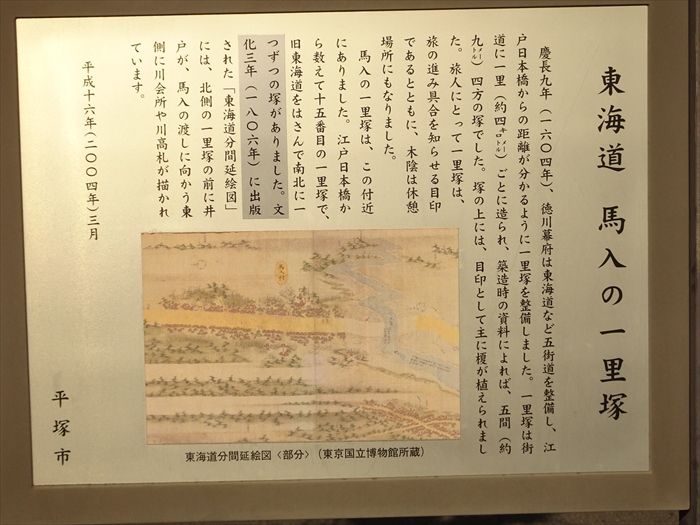 東海道 馬入の一里塚
慶長九年（一六〇四年）、徳川幕府は東海道など五街道を整備し、江
戸日本橋からの距離が分かるように一里塚を整備しました。一里塚は街
道に一里（約四キロメートル）ごとに造られ、築造時の資料によれば、五間（約
九メートル）四方の塚でした。塚の上には、目印として主に榎が植えられまし
た。旅人にとって一里塚は、
旅の進み具合を知らせる目印
であるとともに、木陰は休憩
場所にもなりました。
馬入の一里塚は、この付近
にありました。江戸日本橋か
ら数えて十五番目の一里塚で、
旧東海道をはさんで南北に一
つずつの塚がありました。文
化三年（一八〇六年）に出版
された「東海道分間延絵図」
には、北側の一里塚の前に井
戸が、馬入の渡しに向かう東
側に川会所や川高札が描かれ
ています。
平成十六年（二〇〇四年）三月
平塚市
東海道分間延絵図〈部分〉（東京国立博物館所蔵）